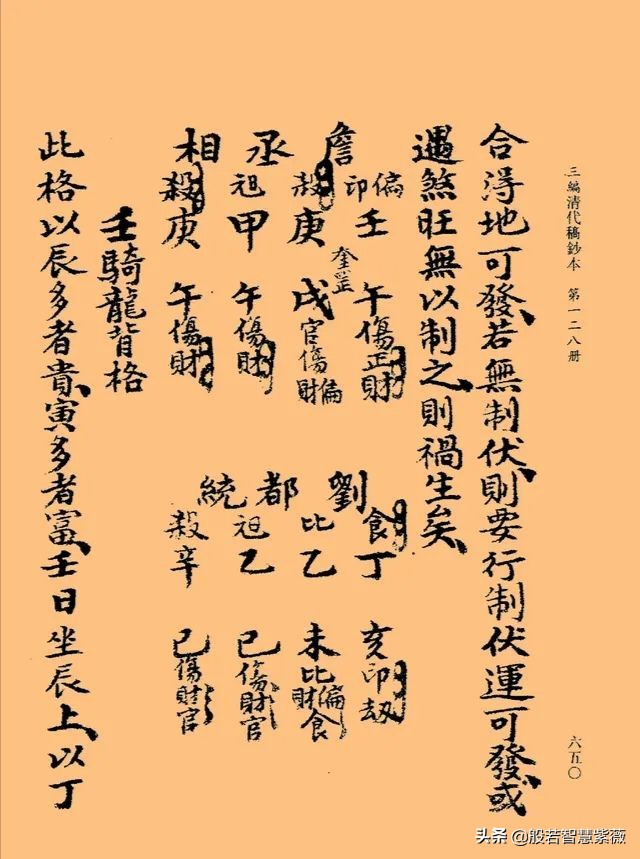 三編清代稿鈔本 第一二八册
六五〇
合淂地可發若無制伏則要行制伏運可發或
遇煞旺無以制之則禍生矣
詹丞相
偏印 壬 午 傷正財
殺 庚 奎罡 戌 官傷偏財
甲 午 傷財
殺 庚 午 傷財
劉都統
食 丁 亥 印劫
比 乙 未 比偏財食
乙 巳 傷財官
殺 辛 巳 傷財官
壬騎龍背格
此格以辰多者貴寅多者富壬日坐辰上以丁
头条 @般若智慧紫薇